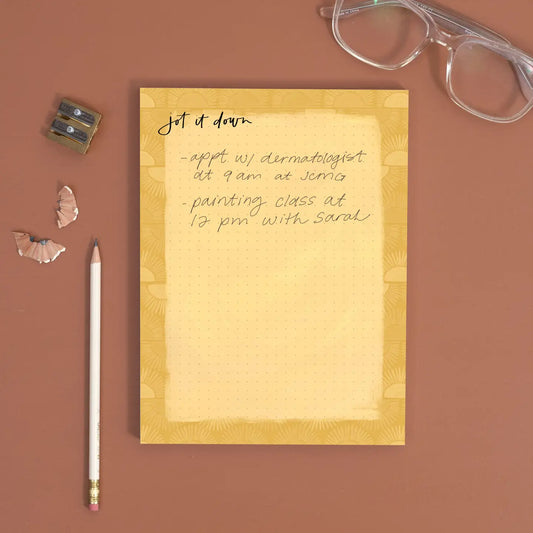 jot it down
- appt w/ dermatologist
at 9 am at JCMG
- painting class at
12 pm with Sarah